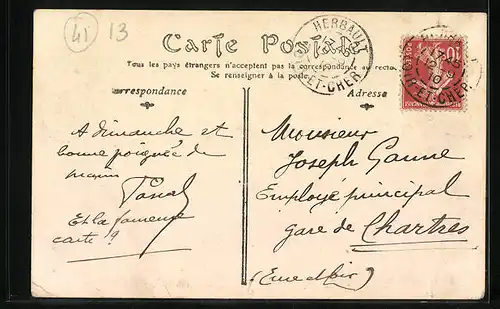 41 13
Carte Postale
HERBAULT
LOIR-ET-CHER
Tous les pays étrangers n'acceptent pas la correspondance au recto
Se renseigner à la poste
Correspondance
Adresse
A dimanche et
bonne poignée de
main
Et la fameuse
carte ?
Monsieur
Joseph Ganne
Employé principal
gare de Chartres
(Eure et Loir)
10